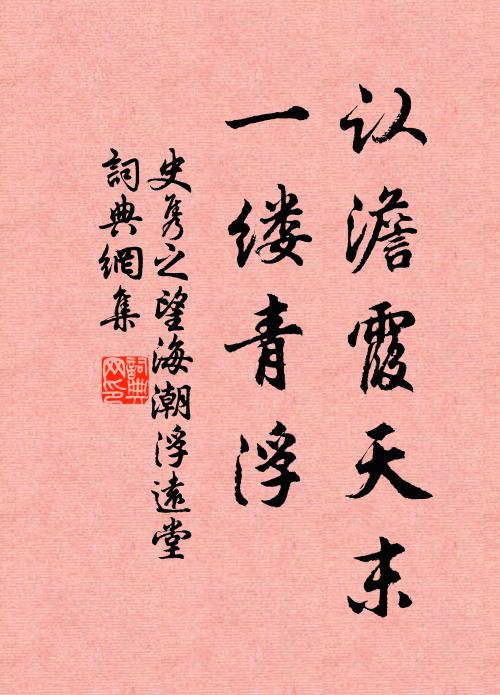 认澹霞天末
一缕青浮
史隽之望海潮浮遠堂
詞典網集
詞典
网印